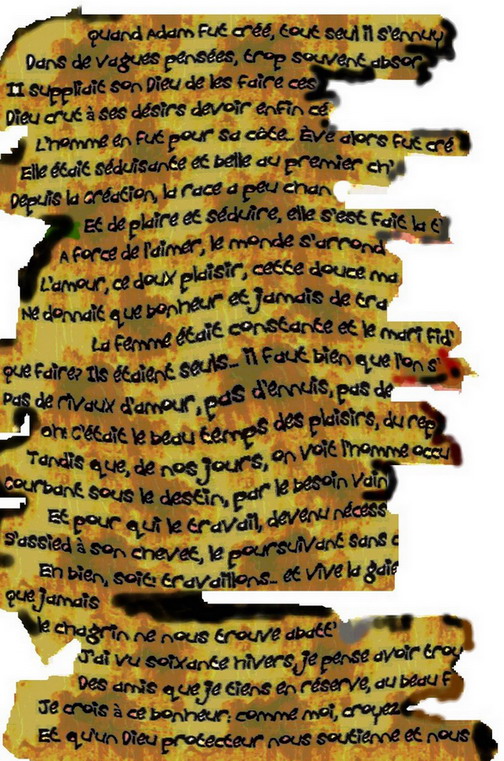 quand Adam fut créé, tout seul il s'ennuy
Dans de vagues pensées, trop souvent absor
Il suppliait son Dieu de les faire ces
Dieu crut à ses désirs devoir enfin cé
L'homme en fut pour sa côte... Ève alors fut cré
Elle était séduisante et belle au premier ch
Depuis la création, la race a peu chan
Et de plaire et séduire, elle s'est fait la t
A force de l'aimer, le monde s'arrond
L'amour, ce doux plaisir, cette douce ma
Ne donnait que bonheur et jamais de tra
La femme était constante et le mari fid
que faire? Ils étaient seuls... il faut bien que l'on s'
Pas de rivaux d'amour, pas d'ennuis, pas de
ah! C'était le beau temps des plaisirs, du rep
Tandis que, de nos jours, on voit l'homme occu
Courbant sous le destin, par le besoin vain
Et pour qui le travail, devenu nécess
S'assied à son chevet, le poursuivant sans c
Eh bien, soit! travaillons... et vive la gaie
que jamais
le chagrin ne nous trouve abatt
J'ai vu soixante hivers, je pense avoir trou
Des amis que je tiens en réserve, au beau f
Je crois à ce bonheur: comme moi, croyez
Et qu'un Dieu protecteur nous soutienne et nous